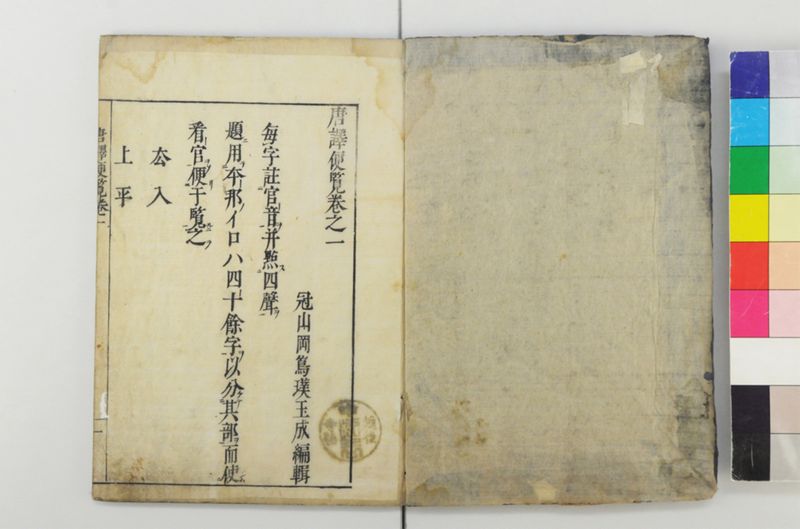 唐譯便覽卷之一
冠山岡島璞玉成編輯
每字註官音并㸃四聲
題用本邦イロハ四十餘字以分其部而使
看官便于覽之
去入
上平
唐譯便覽卷一
一